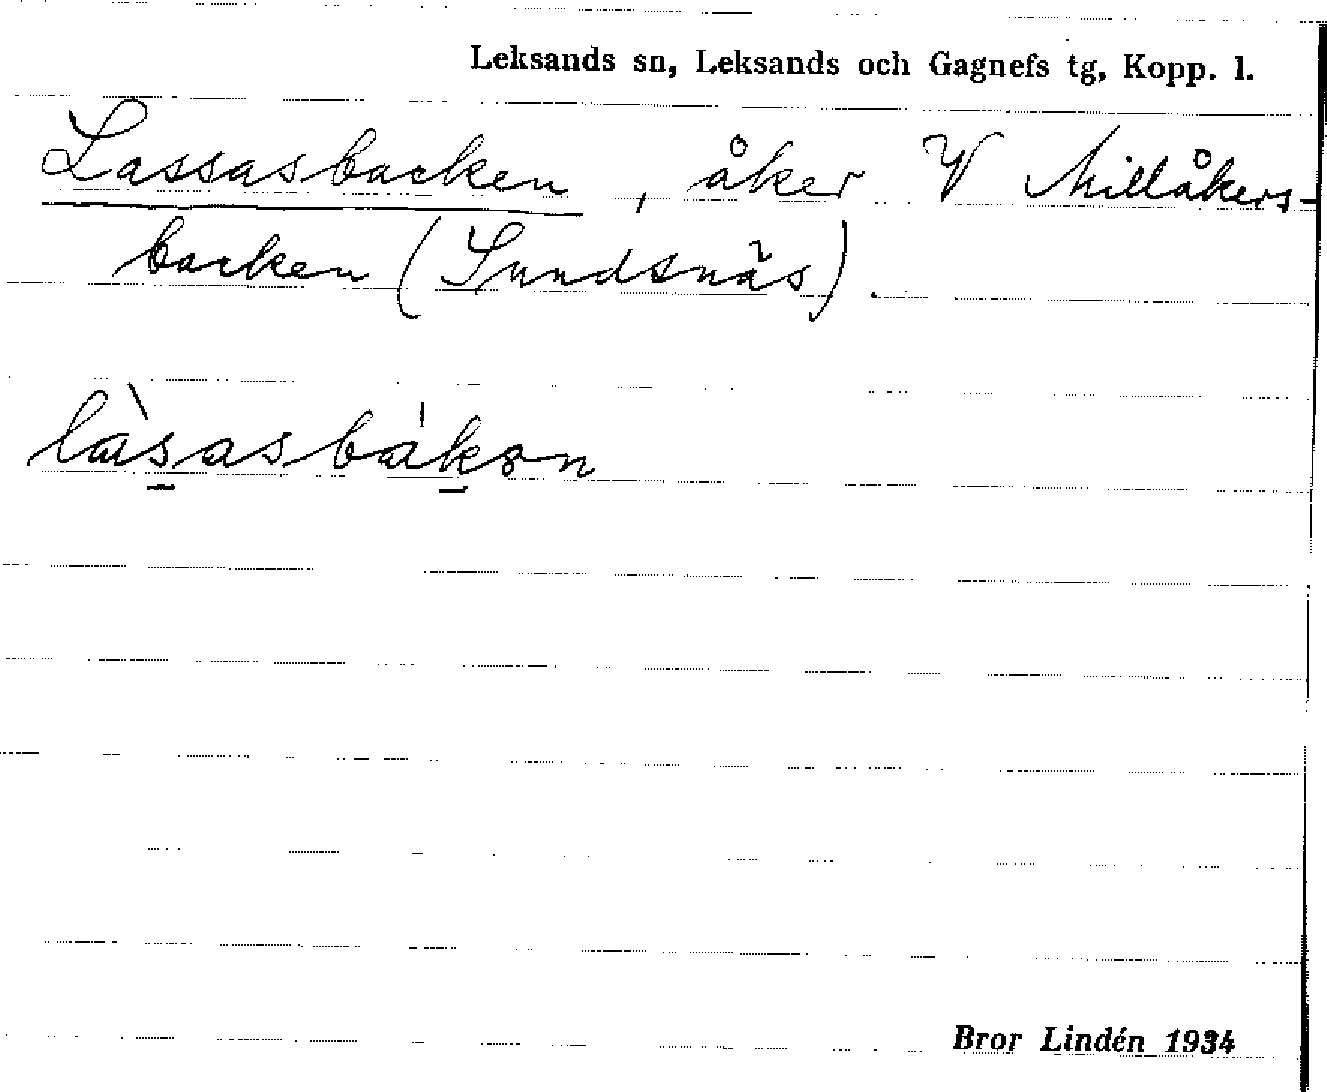 Leksands sn, Leksands och Gagnefs tg, Kopp. l.
Lassasbacken, åker V Millåkers-
backen (Sundsnäs).
làsasbákən
Bror Lindén 1934